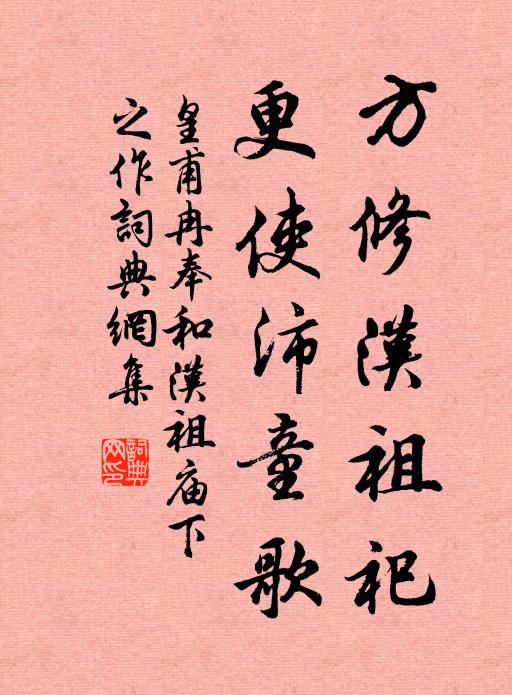 方修漢祖祀
更使沛童歌
皇甫冉奉和漢祖庙下
之作詞典網集
詞典
网印